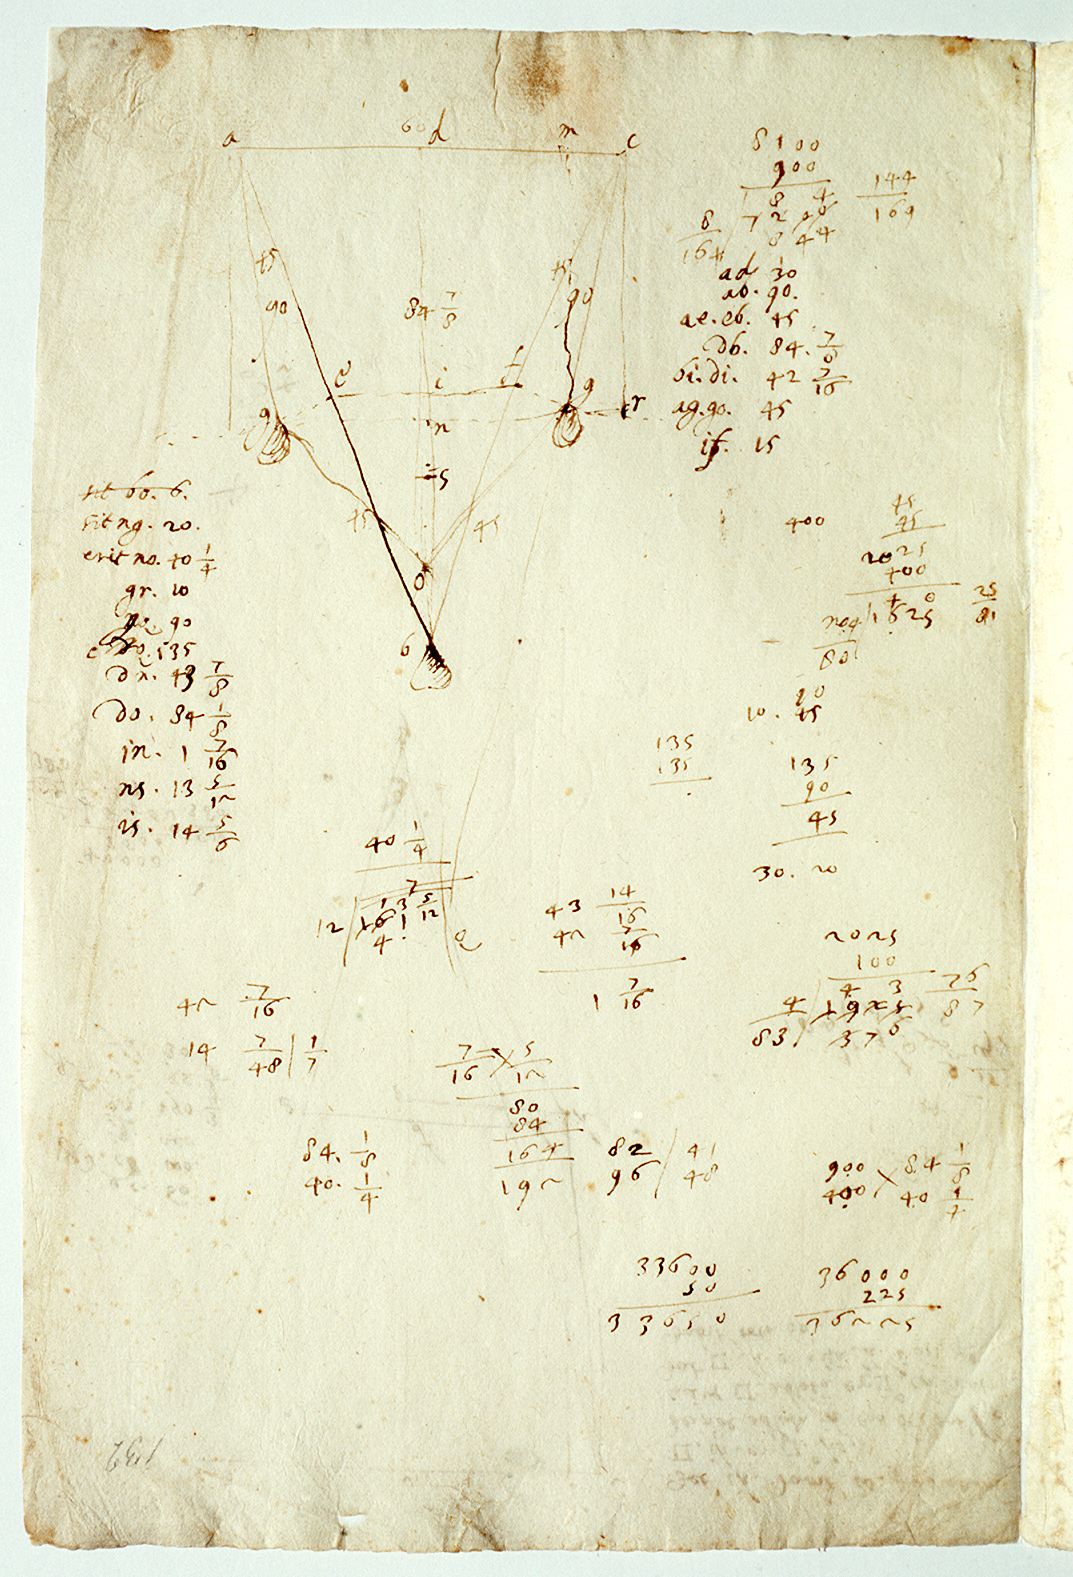 a 60 d m c
45
90
84 7/8
45
90
e i f
g n g r
s
45 45
o
b
8100
900
8 4
8/164 7200
844
144/169
ad 30
ab. 90.
ae. eb. 45
Db. 84. 7/8
bi. di. 42 7/16
ag. go. 45
if. 15
sit bo. 6.
sit ng. 20.
erit no. 40 1/4
gr. 10
90
135
Dn. 43 7/8
Do. 84 1/8
in. 1 7/16
ns. 13 5/12
is. 14 5/6
400
45
45
2025
400
4 0
1625
801
25/81
10. 45
135
135
135
90
45
30. 20
40 1/4
13 5/12
12 161
4
43 14/16
42 7/16
1 7/16
2025
100
4 3
4/83 1925
376
76/87
42 7/16
14 7/48 1/7
7/16 5/12
80
84
164
192
82/96 41/48
84. 1/8
40. 1/4
900 84 1/8
400 40 1/4
33600
50
33650
36000
225
36225